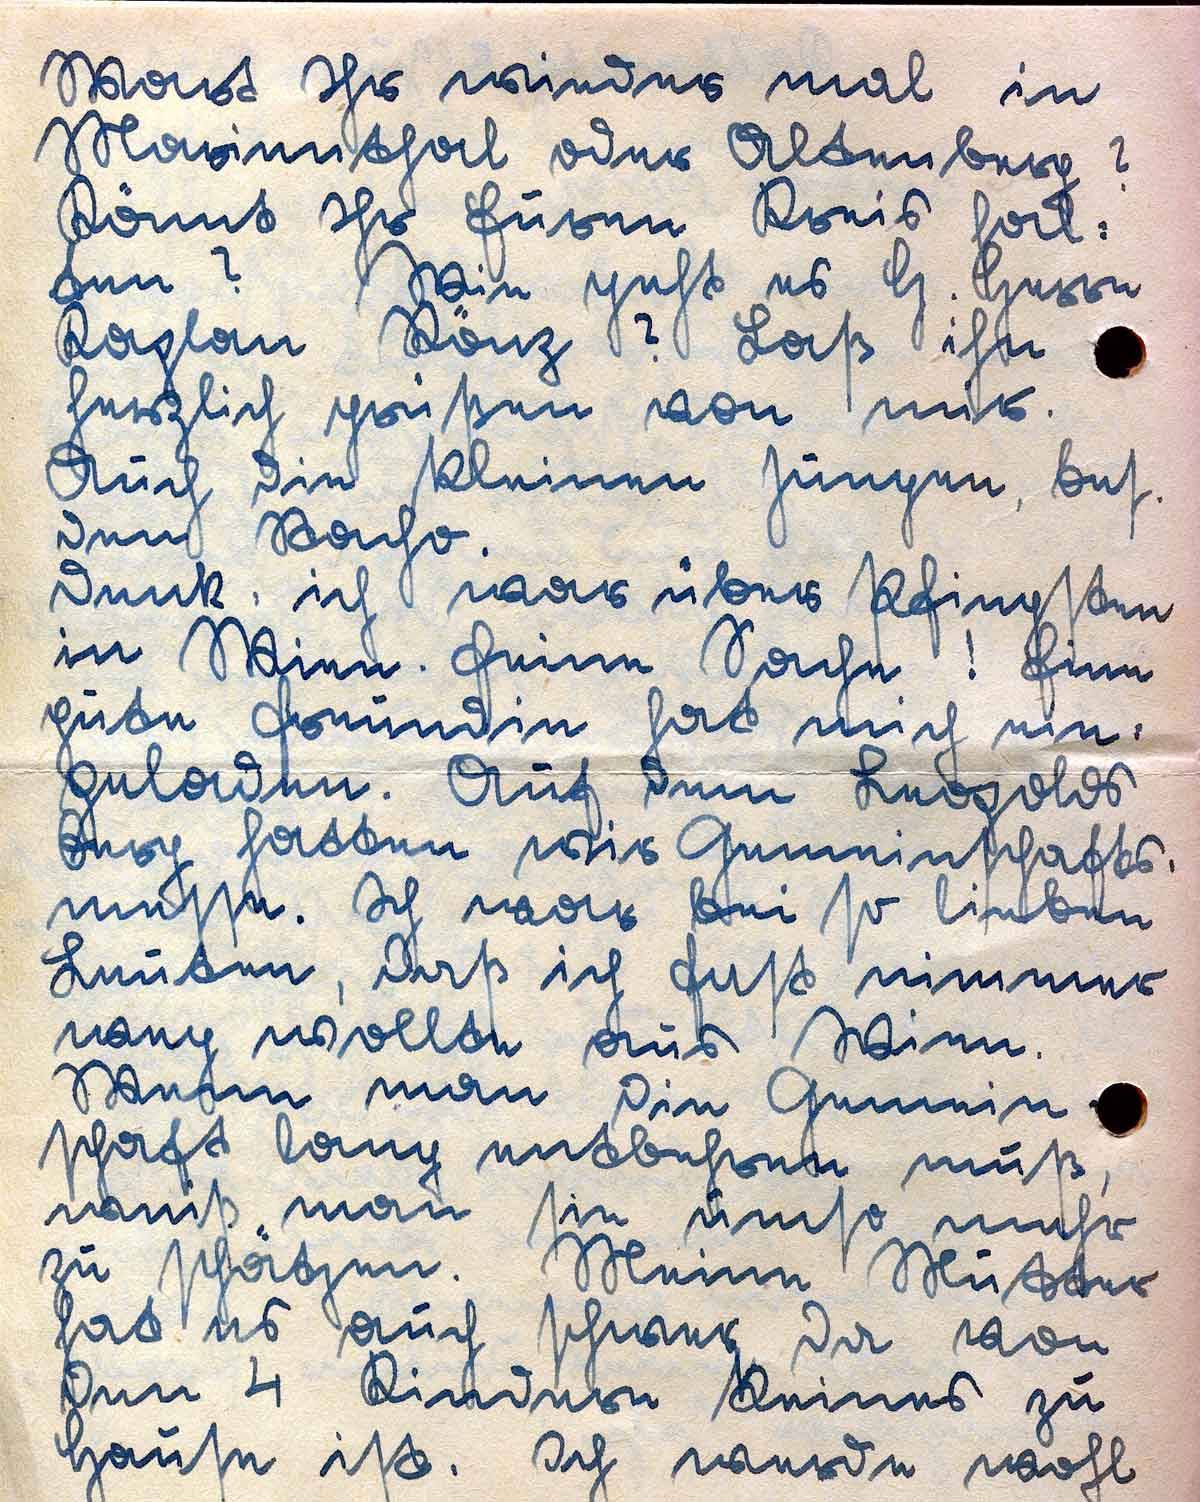 Warst Ihr wieder mal in
Marienthal oder Altenberg?
Könnt Ihr Euren Kreis hal-
ten? Wie geht es H. Herrn
Kaplan Könz? Laß ihn
herzlich grüßen von mir.
Auch die kleinen Jungen, bes.
den
Denk, ich war über Pfingsten
in Wien. Feine Sache! Eine
gute Freundin hat mich ein-
geladen. Auf dem Leopolds
berg hatten wir Gemeinschafts-
messe. Ich war bei so lieben
Leuten, daß ich fast nimmer
weg wollte aus Wien.
Wenn man die Gemein-
schaft lang entbehren muß,
weiß man sie umso mehr
zu schätzen. Meine Mutter
hat es auch schwer da von
den 4 Kindern keines zu
Hause ist. Ich werde wohl